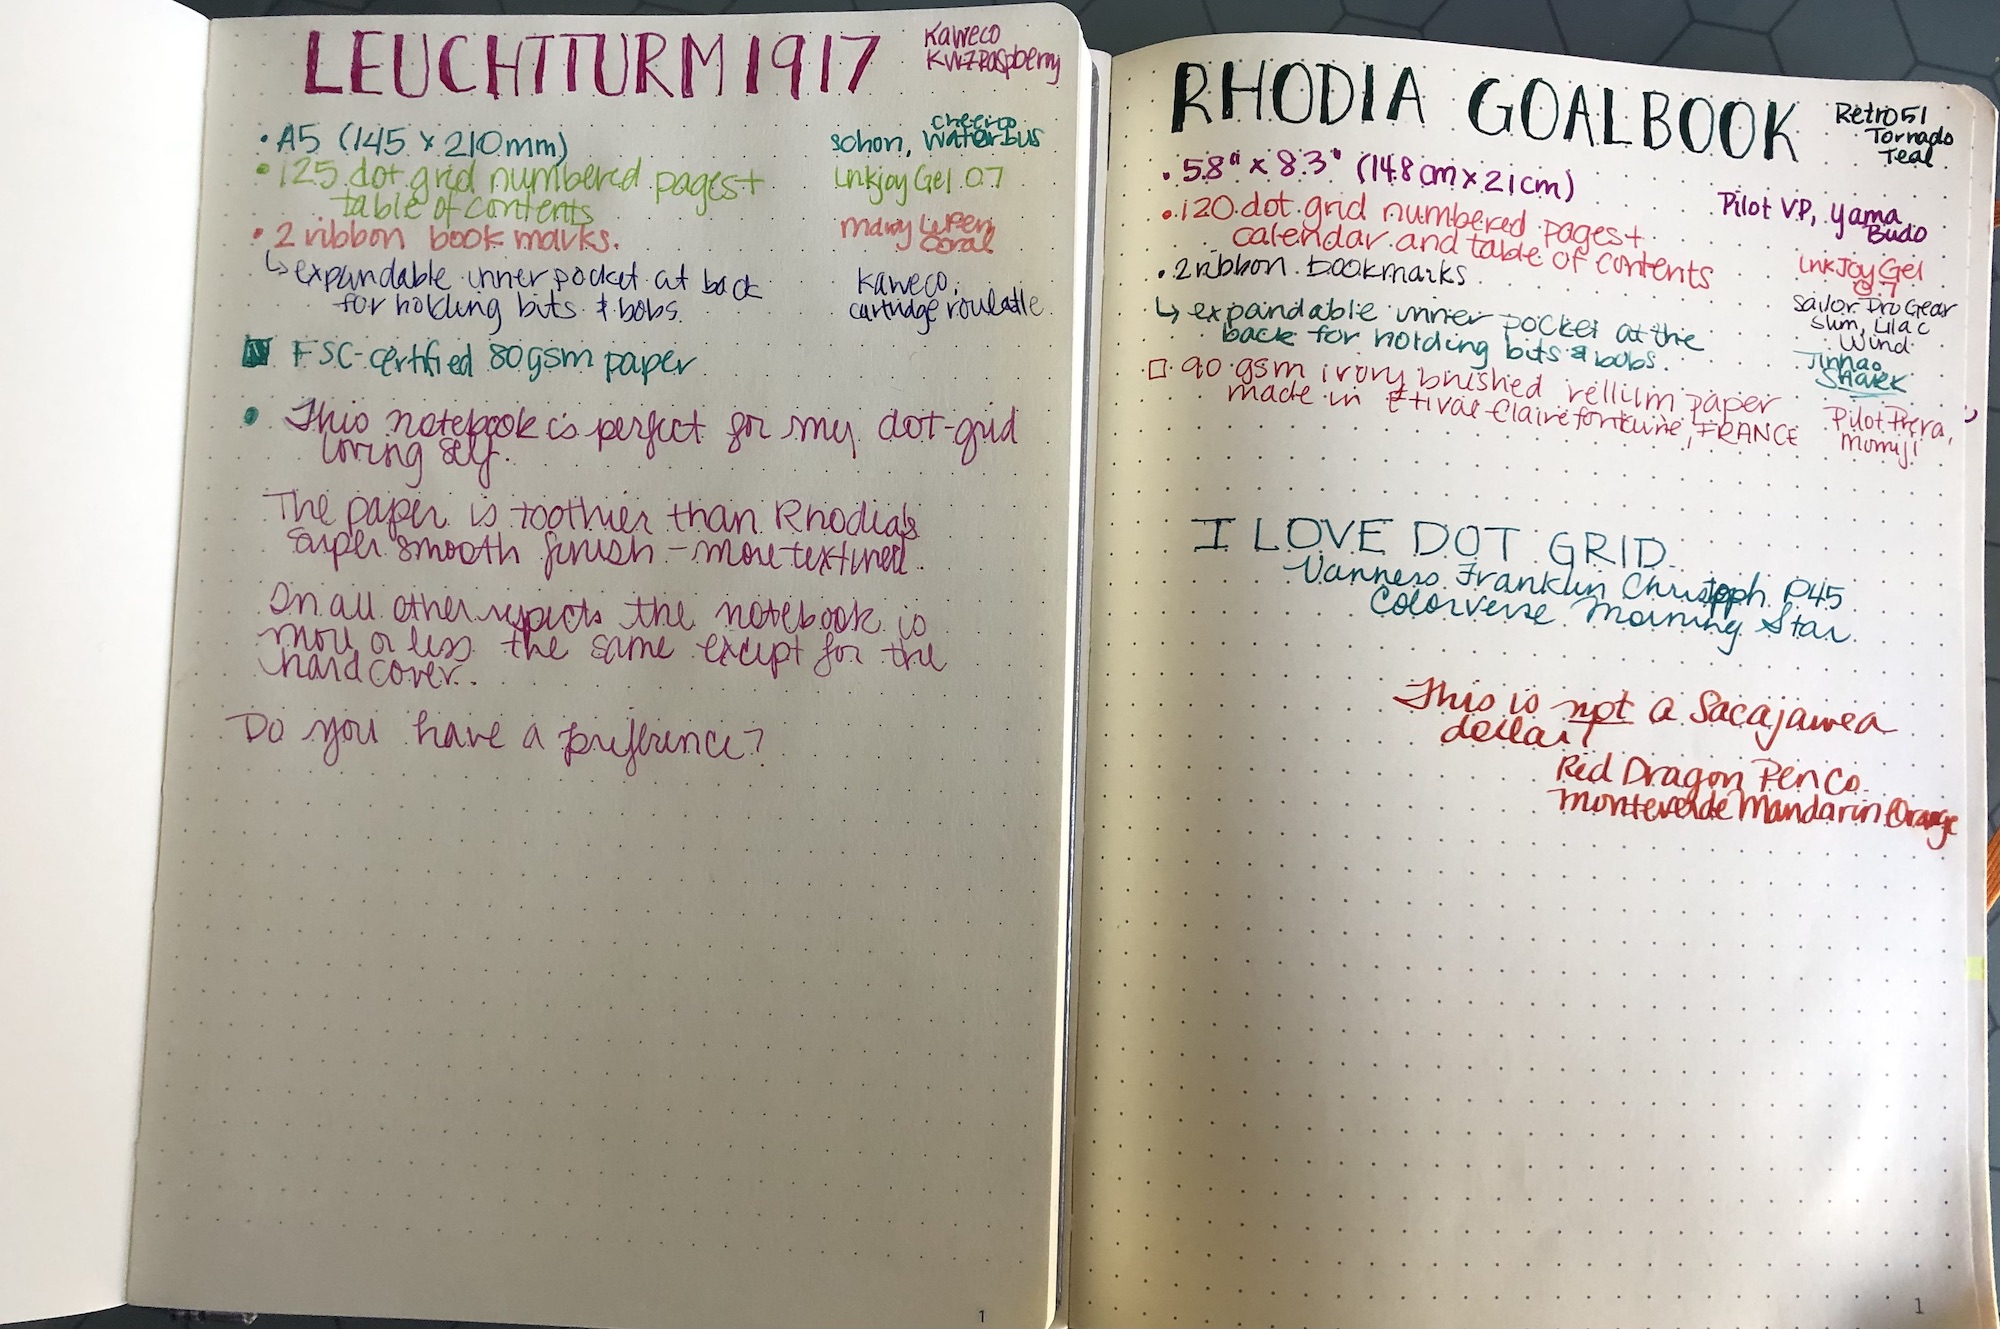 LEUCHTTURM1917
Kaweco
KWZ Raspberry
• A5 (145 x 210mm)
cheerio
schon, Waterbus
• 125 dot grid numbered pages +
table of contents
InkJoy Gel 0.7
• 2 ribbon book marks.
Coral
↳ expandable inner pocket at back
for holding bits & bobs.
Kaweco,
cartridge
FSC-certified 80gsm paper
• This notebook is perfect for my dot-grid
loving self.
The paper is toothier than Rhodia's
super smooth finish - more textured.
In all other respects the notebook is
more or less the same except for the
hard cover.
Do you have a preference?
1
RHODIA GOALBOOK
Retro51
Tornado
Teal
• 5.8" x 8.3" (148cm x 21cm)
Pilot VP, Yama
Budo
• 120 dot grid numbered pages +
calendar and table of contents
InkJoy Gel
0.7
• 2 ribbon bookmarks
Sailor Pro Gear
Slim, Lilac
Wind
↳ expandable inner pocket at the
back for holding bits & bobs.
Jinhao
Shark
□ 90 gsm ivory brushed vellum paper
made in Etival Clairefontaine, FRANCE
Pilot Prera,
Momiji
I LOVE DOT GRID
Vanness Franklin Christoph P45
Colorverse Morning Star
This is not a Sacajawea
dollar!
Red Dragon Pen Co.
Monteverde Mandarin Orange
1